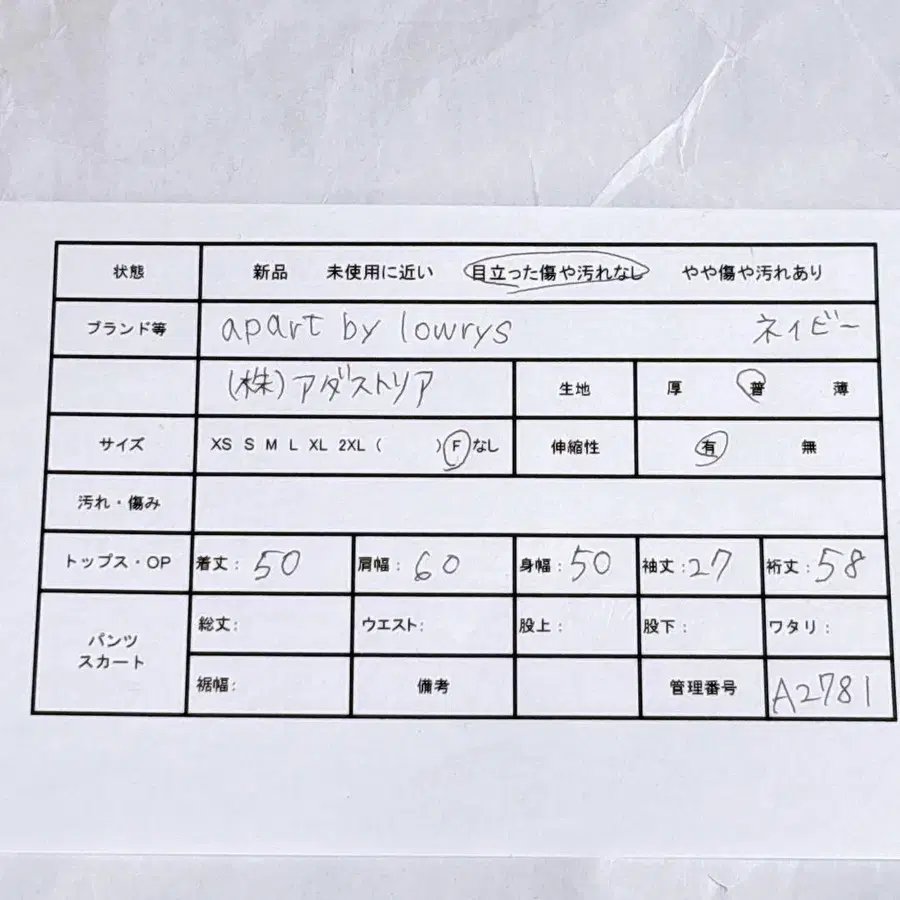 状態 新品 未使用に近い 目立った傷や汚れなし やや傷や汚れあり
ブランド等 apart by lowrys ネイビー
(株)アダストリア 生地 厚 普 薄
サイズ XS S M L XL 2XL ( ) F なし 伸縮性 有 無
汚れ・傷み
トップス・OP 着丈: 50 肩幅: 60 身幅: 50 袖丈: 27 裄丈: 58
パンツ スカート 総丈: ウエスト: 股上: 股下: ワタリ:
裾幅: 備考 管理番号 A2781